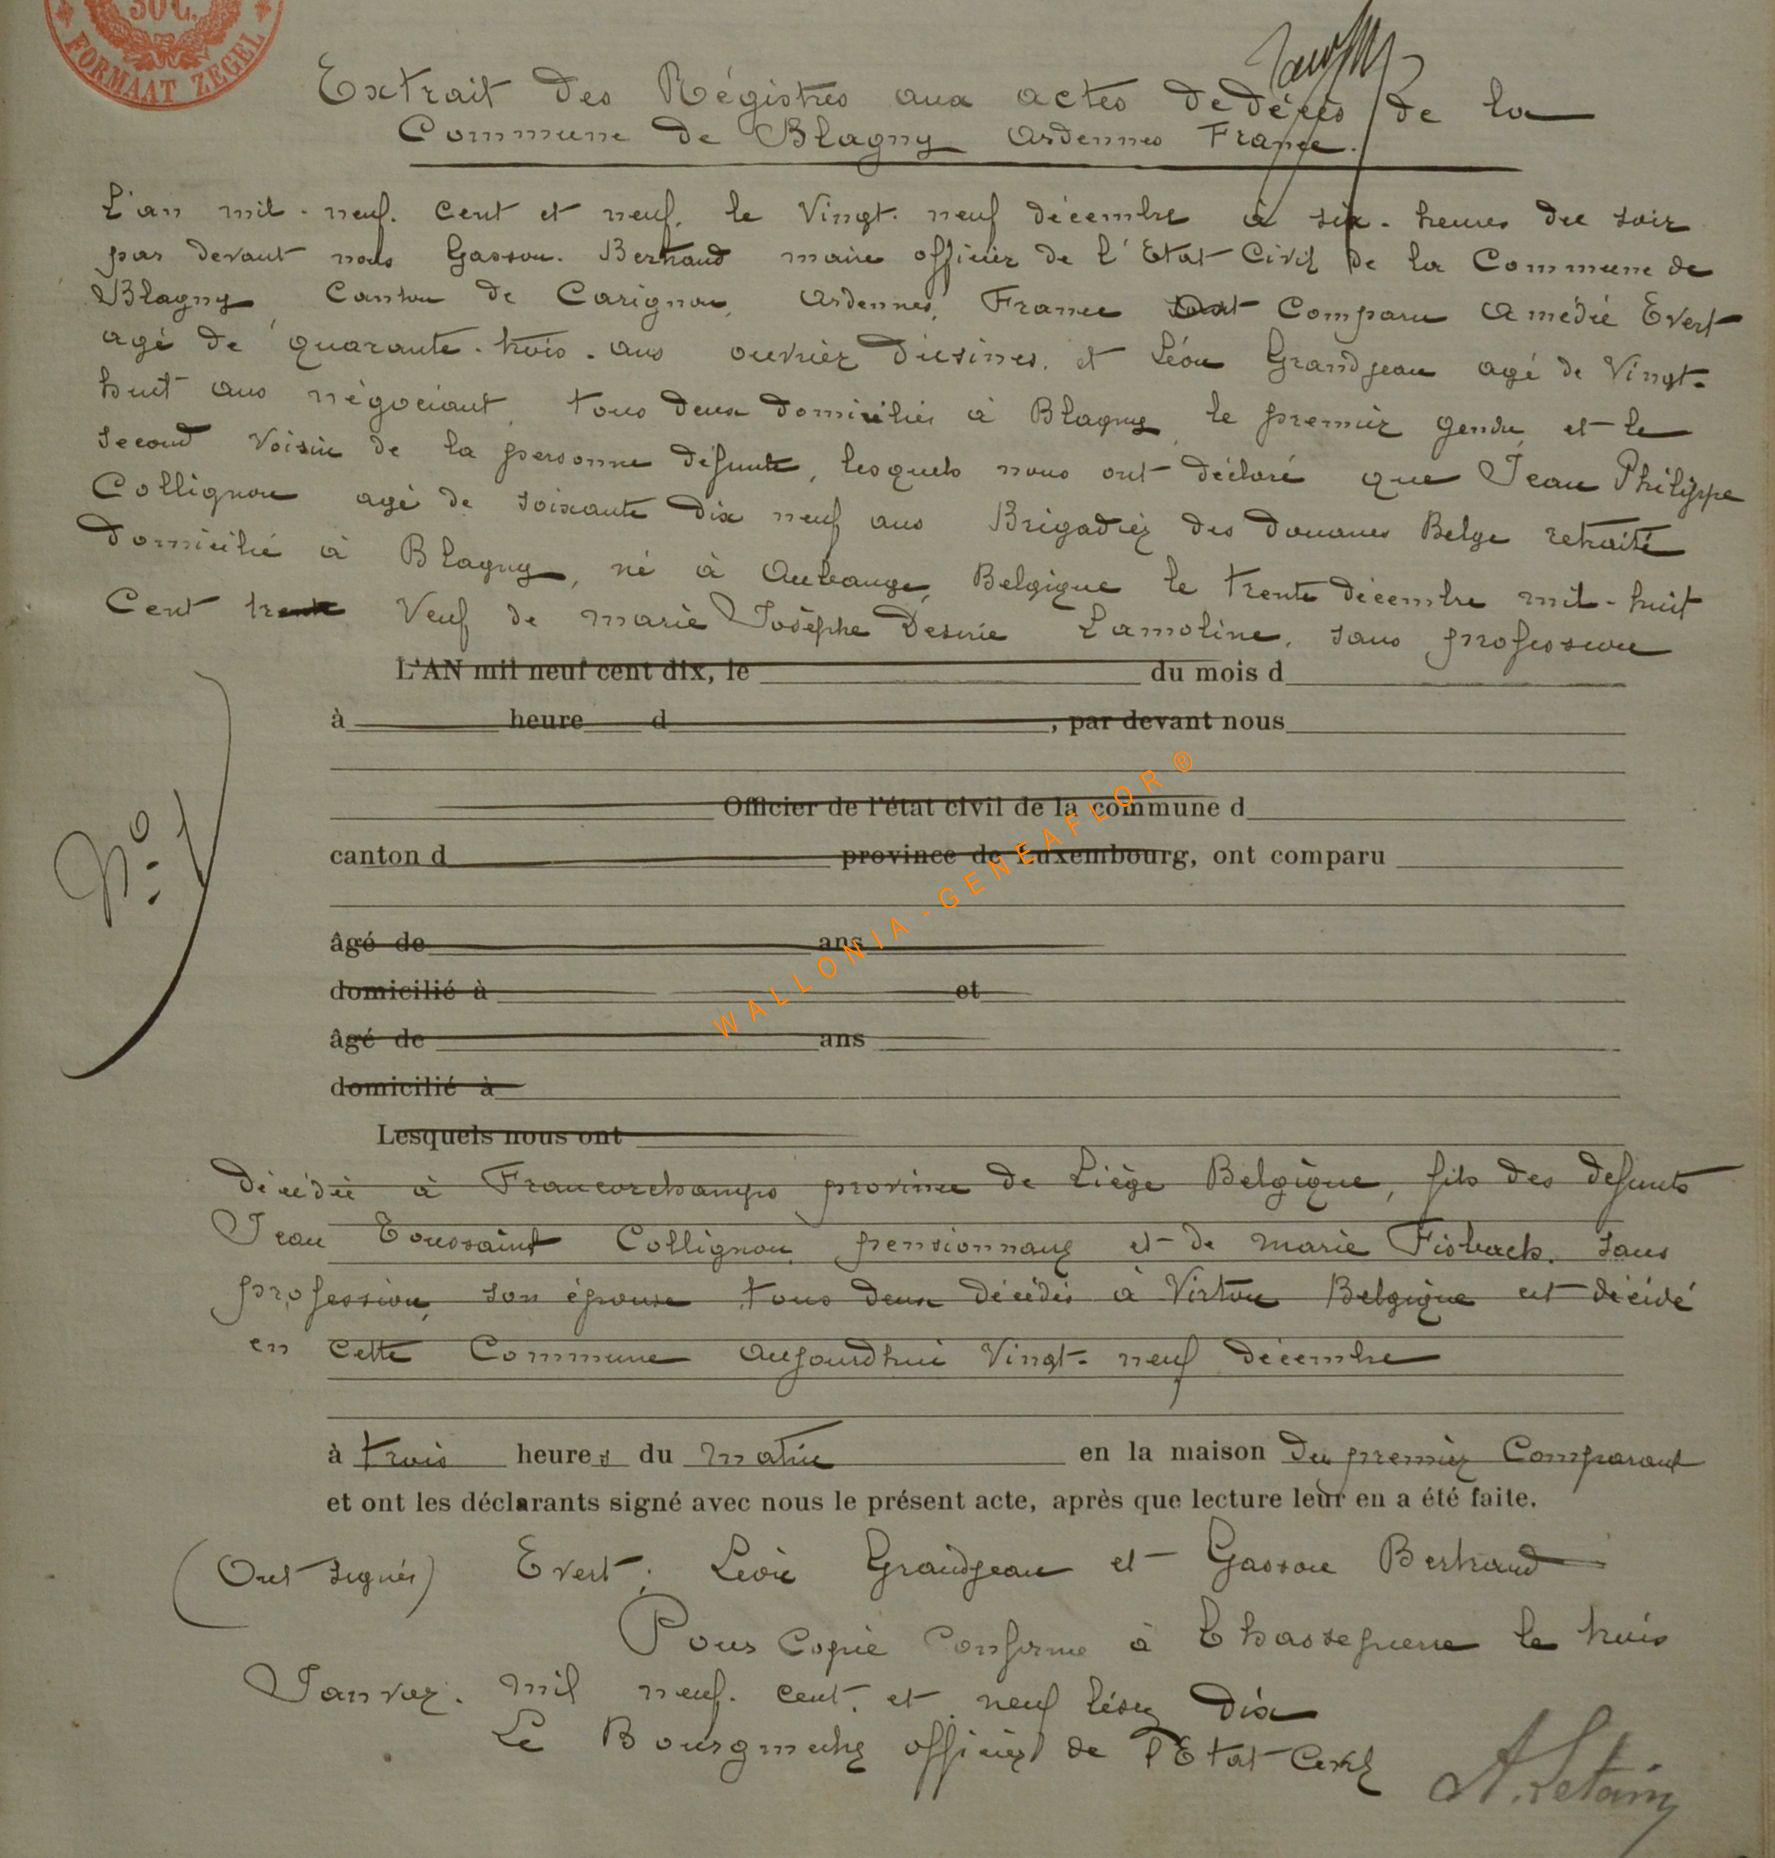 50 C.
FORMAAT ZEGEL
Extrait des Régistres aux actes de décès de la
Commune de Blagny Ardennes France.
L'an mil-neuf. Cent et neuf. le Vingt. neuf décembre à six. heures du soir
par devant nous Gasson. Bertrand maire officier de l'Etat Civil de la Commune de
Blagny Canton de Carignan, Ardennes, France ont Comparu Amédié Evert
agé de quarante-trois. ans ouvrier d'usines. et Léon Grandjean agé de Vingt-
huit ans négociant, tous deux domiciliés à Blagny, le premier gendre, et le
second voisin de la personne défunte, lesquels nous ont déclaré que Jean Philippe
Collignon agé de soixante dix neuf ans Brigadier des douanes Belge retraité
domicilié à Blagny, né à Aubange, Belgique le trente décembre mil-huit
Cent trente Veuf de marie Josèphe Desirée Lamoline, sans profession
L'AN mil neuf cent dix, le du mois d
à heure d , par devant nous
Officier de l'état civil de la commune d
canton d province de Luxembourg, ont comparu
âgé de ans
domicilié à et
âgé de ans
domicilié à
Lesquels nous ont
N° 1
WALLONIA-GENEAFLOR ®
décédée à Francorchamps province de Liège Belgique, fils des defunts
Jean Toussaint Collignon pensionnaire et de marie Fisbach. sans
profession, son épouse tous deux décédés à Virton Belgique est décédé
en cette Commune aujourdhui Vingt-neuf décembre
à trois heures du matin en la maison du premier Comparant
et ont les déclarants signé avec nous le présent acte, après que lecture leur en a été faite.
(Ont signés) Evert, Léon Grandjean et Gasson Bertrand
Pour Copie Conforme à Chassepierre le trois
Janvier. mil neuf. cent. et neuf lisez dix
Le Bourgmestre officier de l'Etat Civil
A. Letain